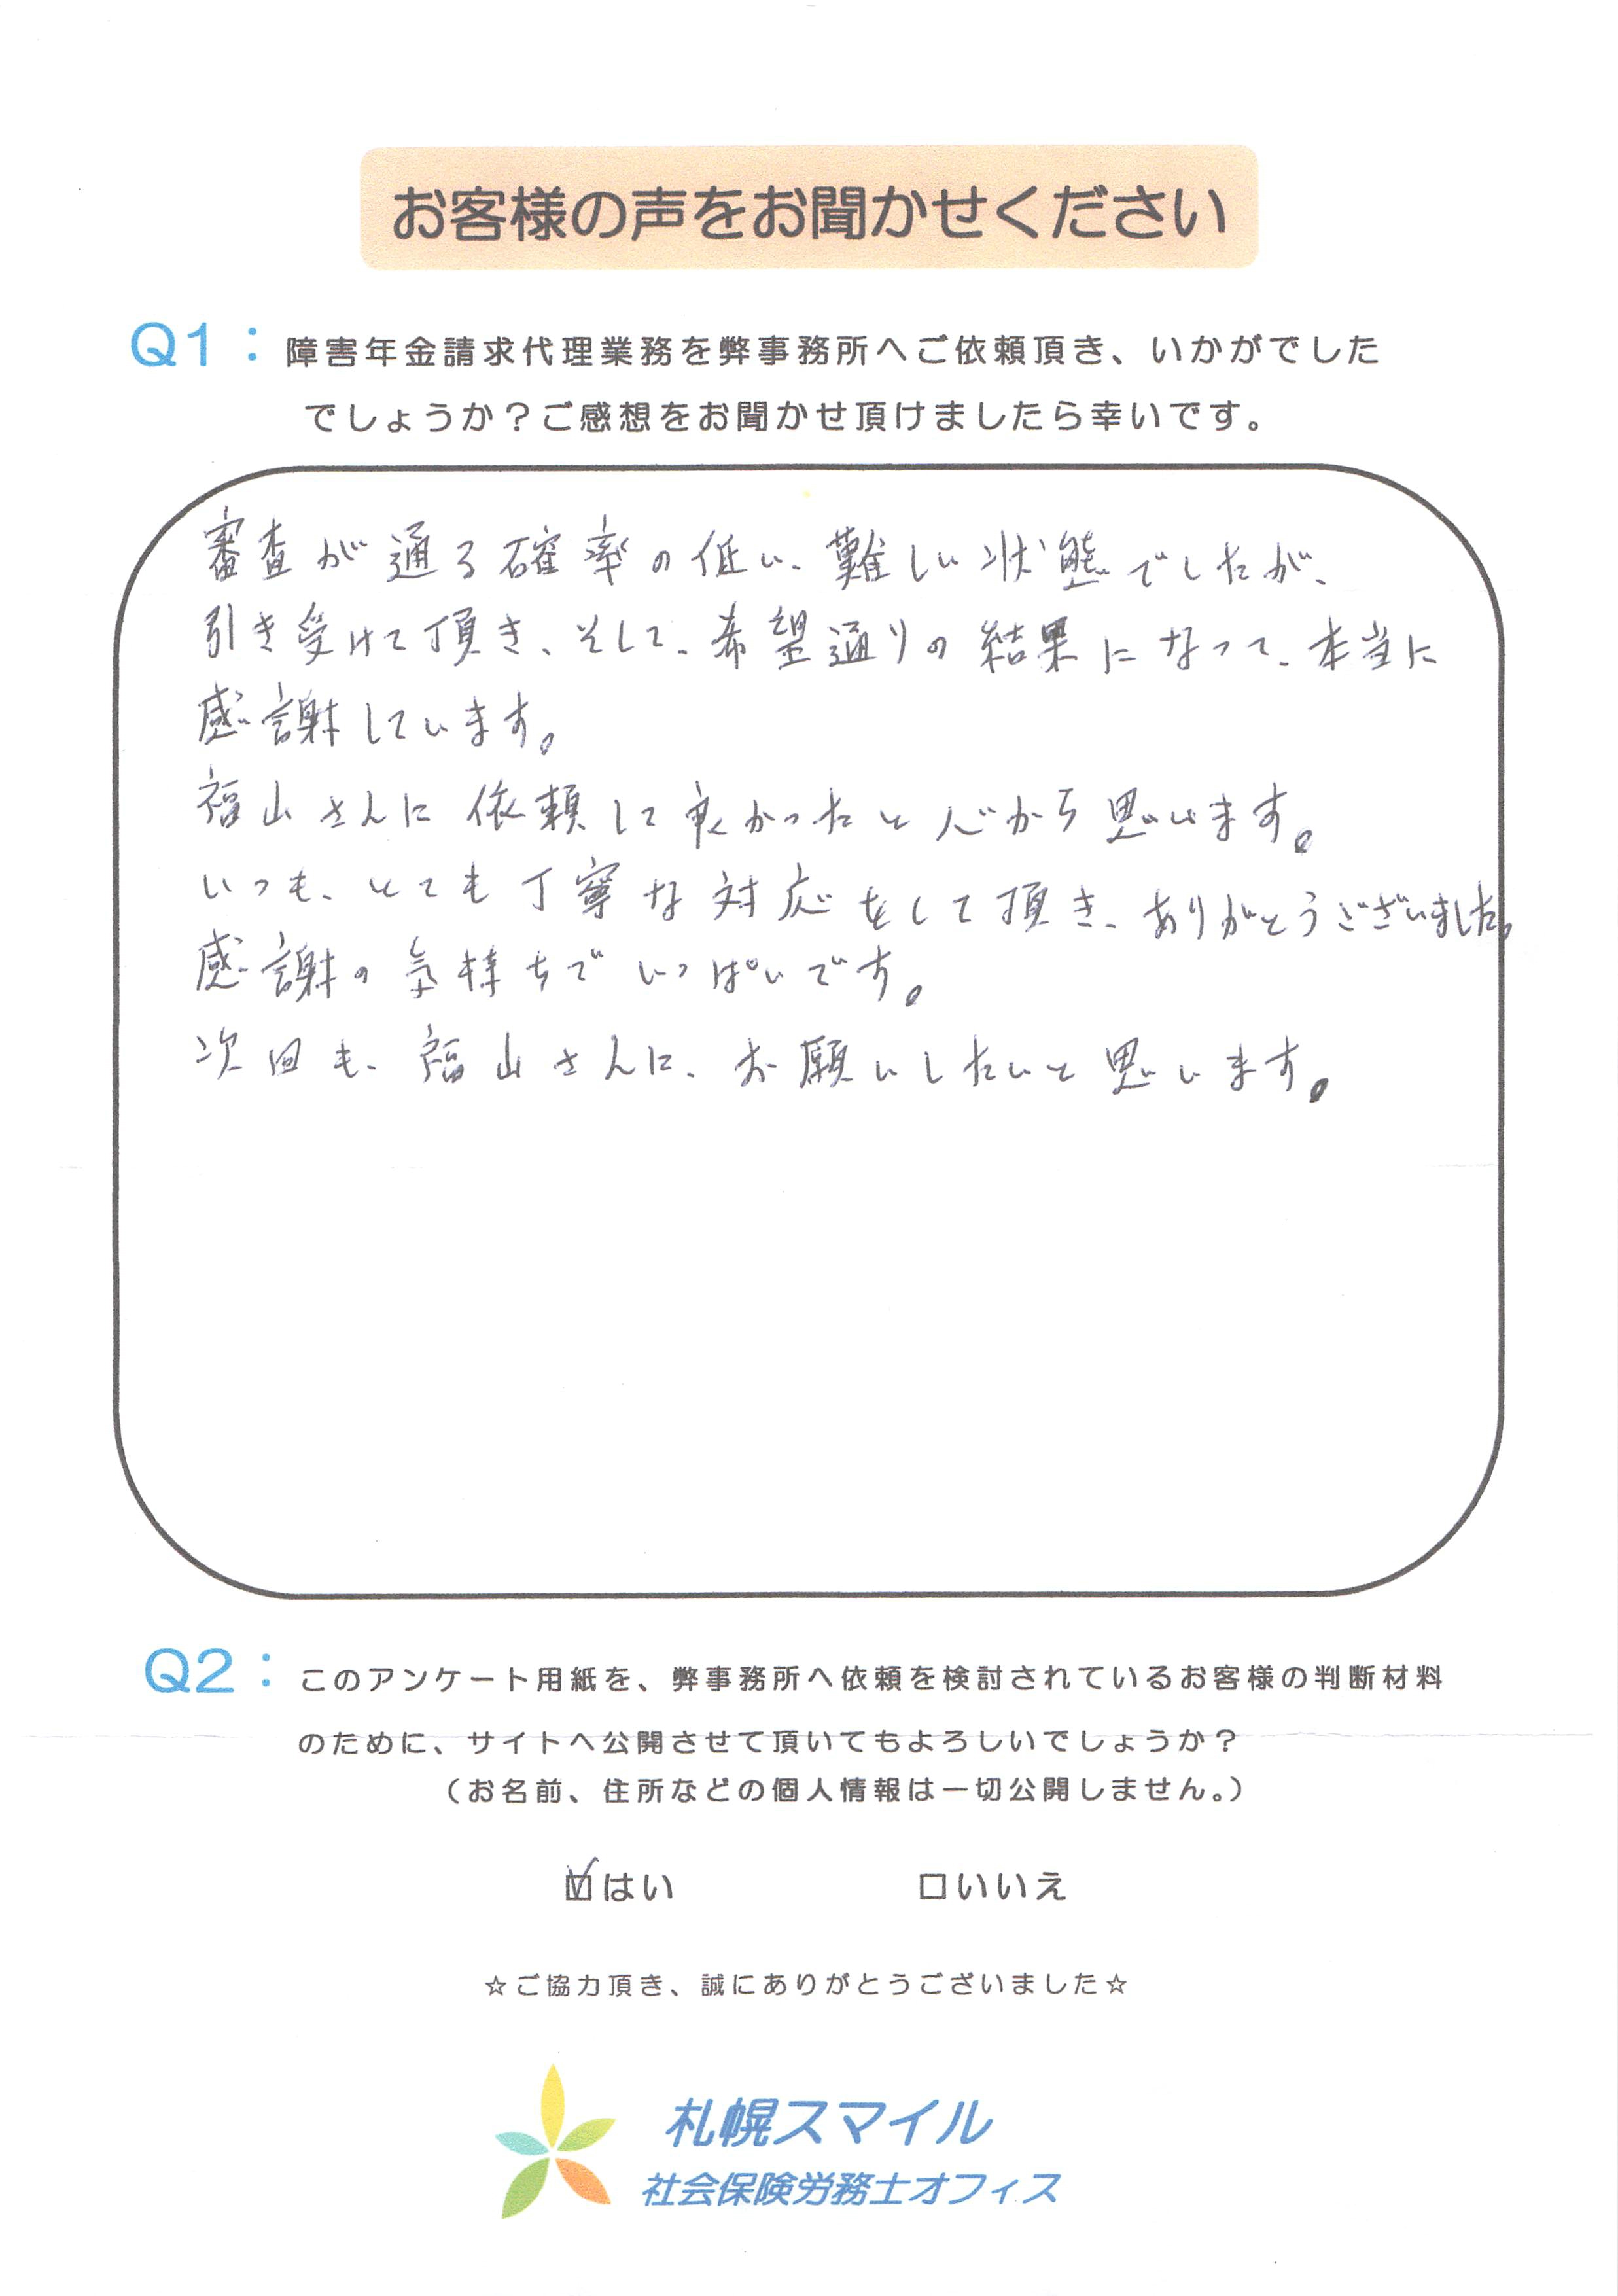 お客様の声をお聞かせください
Q1：障害年金請求代理業務を弊事務所へご依頼頂き、いかがでした
でしょうか？ご感想をお聞かせ頂けましたら幸いです。
審査が通る確率の低い、難しい状態でしたが、
引き受けて頂き、そして、希望通りの結果になって、本当に
感謝しています。
福山さんに依頼して良かったと心から思います。
いつも、とても丁寧な対応をして頂き、ありがとうございました。
感謝の気持ちでいっぱいです。
次回も、福山さんに、お願いしたいと思います。
Q2：このアンケート用紙を、弊事務所へ依頼を検討されているお客様の判断材料
のために、サイトへ公開させて頂いてもよろしいでしょうか？
（お名前、住所などの個人情報は一切公開しません。）
☑はい　□いいえ
☆ご協力頂き、誠にありがとうございました☆
札幌スマイル
社会保険労務士オフィス